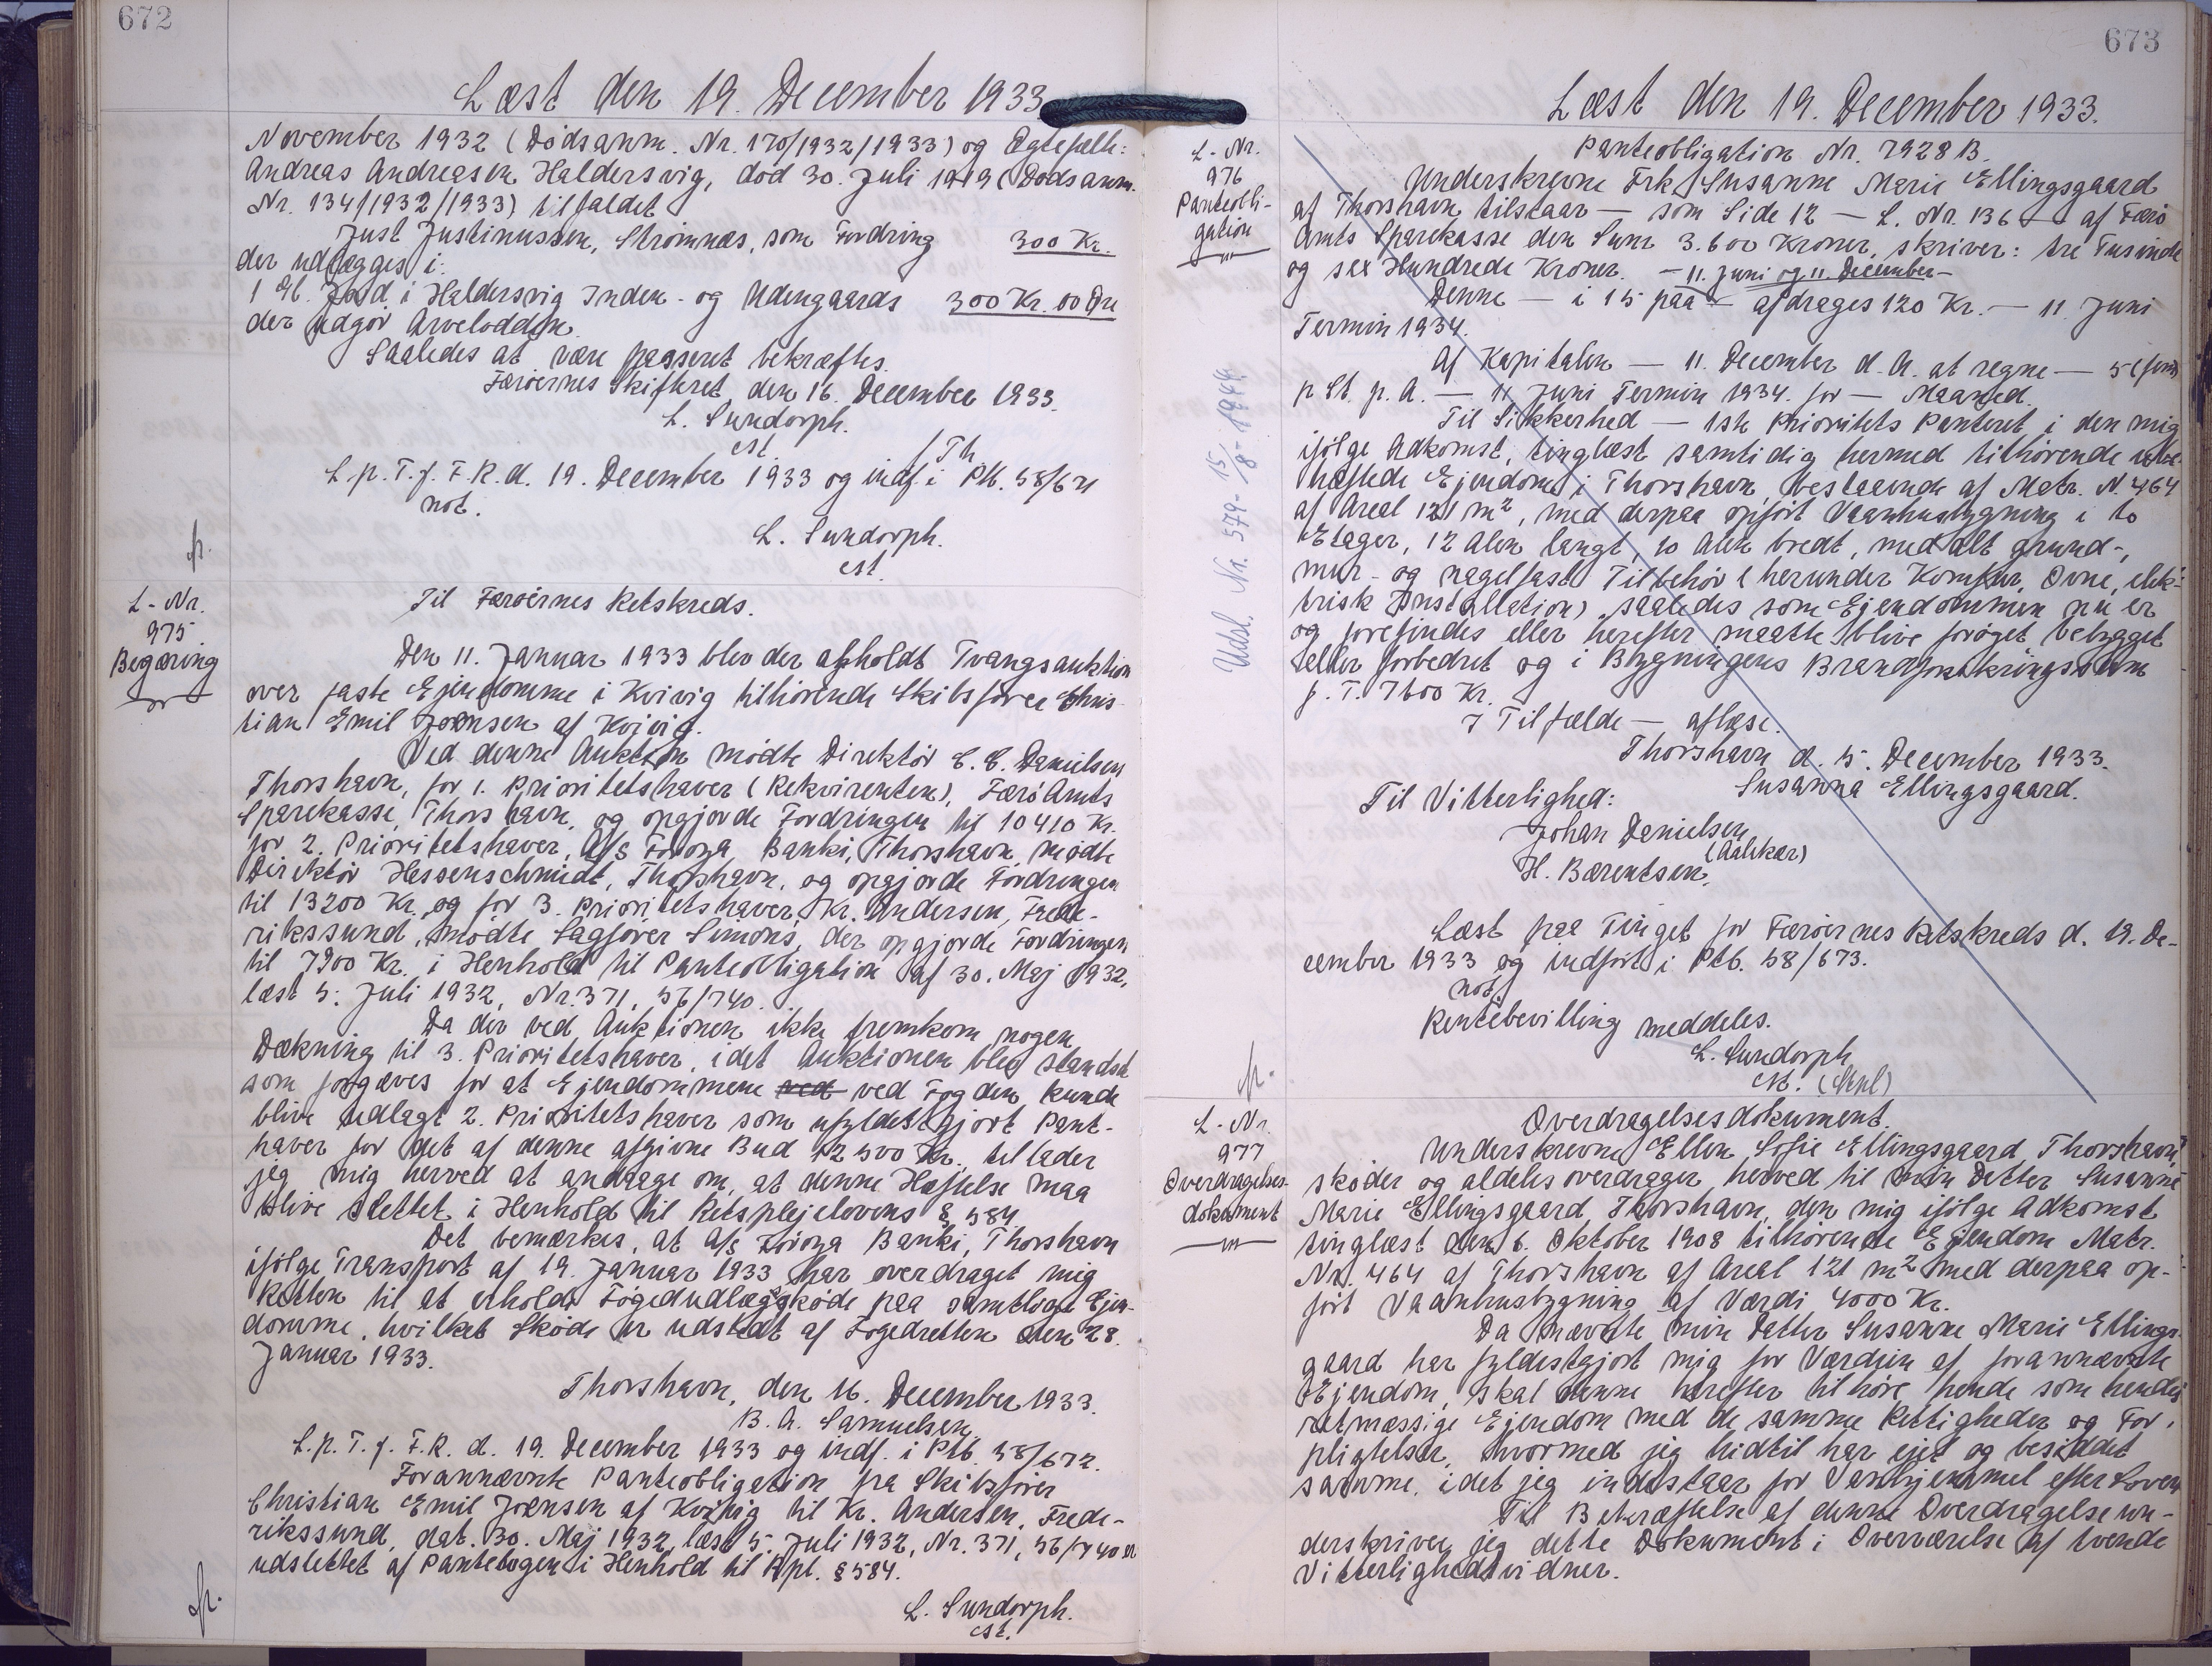 672
Læst den 19. December 1933
November 1932 (Dødsanm. Nr. 170/1932/1933) og Ægtefælle:
Andreas Andreasen Haldersvig, død 30. Juli 1919 (Dødsanm.
Nr. 134/1932/1933) tilfaldet
Just Justinussen, Strømnæs, som Fordring 300 Kr.
der udlægges i:
1 Gl. Jord i Haldersvig Inden- og Udengaards 300 Kr. 00 Øre
der udgør Arvelodden.
Saaledes at være passeret bekræftes.
Færøernes Skifteret, den 16. December 1933.
L. Sundorph.
cst.
/Th.
L. p. T. f. F. R. d. 19. December 1933 og indf. i Ptb. 58/671
not.
L. Sundorph.
cst.
fr.
L-Nr.
975.
Begæring
Til Færøernes Retskreds.
Den 11. Januar 1933 blev der afholdt Tvangsauktion
over faste Ejendomme i Kvivig tilhørende Skibsfører Chris-
tian Emil Joensen af Kvivig.
Ved denne Auktion mødte Direktør C. C. Danielsen
Thorshavn, for 1. Prioritetshaver (Rekvirenten), Færø Amts
Sparekasse, Thorshavn, og opgjorde Fordringen til 10410 Kr.
for 2. Prioritetshaver, A/S Føroya Banki, Thorshavn, mødte
Direktør Hessenschmidt, Thorshavn, og opgjorde Fordringen
til 13200 Kr. og for 3. Prioritetshaver, Kr. Andersen, Frede-
rikssund, mødte Sagfører Simonis, der opgjorde Fordringen
til 7900 Kr. i Henhold til Panteobligation af 30. Maj 1932,
læst 5. Juli 1932, Nr. 371, 56/740.
Da der ved Auktionen ikke fremkom nogen
Dækning til 3. Prioritetshaver, idet Auktionen blev standset
som forgæves for at Ejendommene ved ved Fogden kunde
blive udlagt 2. Prioritetshaver som ufyldestgjort Pant-
haver for det af denne afgivne Bud 12500 Kr., tillader
jeg mig herved at andrage om, at denne Hæftelse maa
blive slettet i Henhold til Retsplejelovens § 584.
Det bemærkes, at A/S Føroya Banki, Thorshavn
ifølge Transport af 19. Januar 1933 har overdraget mig
Retten til at erholde Fogedudlægsskøde paa samtlige Ejen-
domme, hvilket Skøde er udstedt af Fogedretten den 28.
Januar 1933.
Thorshavn, den 16. December 1933.
B. A. Samuelsen
L. p. T. f. F. R. d. 19. December 1933 og indf. i Ptb. 58/672.
Forannævnte Panteobligation fra Skibsfører
Christian Emil Joensen af Kvivig til Kr. Andersen, Frede-
rikssund, dat. 30. Maj 1932, læst 5. Juli 1932, Nr. 371, 56/740 er
udslettet af Pantebogen i Henhold til Rpl. § 584.
L. Sundorph.
cst.
fr.
673
Læst den 19. December 1933.
L-Nr.
976
Panteobli-
gation
Panteobligation Nr. 7928 B.
Underskrevne Frk. Susanne Marie Ellingsgaard
af Thorshavn tilstaar — som Side 12 — L. Nr. 136 — af Færø
Amts Sparekasse den Sum 3.600 Kroner, skriver: tre Tusinde
og sex Hundrede Kroner. — 11. Juni og 11. December —
Denne — i 15 paa — afdrages 120 Kr. — 11. Juni
Termin 1934.
Af Kapitalen — 11. December d. A. at regne — 5 (fem)
p Ct. p. A. — 11 Juni Termin 1934. for — Maaned.
Til Sikkerhed — 1ste Prioritets Panteret i den mig
ifølge Adkomst, tinglæst samtidig hermed tilhørende ube-
hæftede Ejendom i Thorshavn, bestaaende af Matr. N. 464
af Areal 121 m², med derpaa opført Vaanhusbygning i to
Etager, 12 Alen langt, 10 Alen bredt, med alt grund-,
mur- og nagelfast Tilbehør (herunder Komfur, Ovne, elek-
trisk Installation) saaledes som Ejendommen nu er
og forefindes eller herefter maatte blive forøget, bebygget
eller forbedret og i Bygningens Brandforsikringssum
p. T. 7600 Kr.
I Tilfælde — aflæse.
Thorshavn d. 15. December 1933.
Susanna Ellingsgaard.
Til Vitterlighed:
Johan Danielsen
(Aalekær)
H. Bærentsen.
Udsl. Nr. 579 - 15/8 - 1944.
Læst paa Tinget for Færøernes Retskreds d. 19. De-
cember 1933 og indført i Ptb. 58/673.
not.
Rentebevilling meddeles.
L. Sundorph
cst.
fr.
L-Nr.
977
Overdragelses-
dokument
Overdragelsesdokument.
Underskrevne Ellen Sofie Ellingsgaard, Thorshavn,
skøder og aldeles overdrager herved til min Datter Susanne
Marie Ellingsgaard, Thorshavn, den mig ifølge Adkomst
tinglæst den 6. Oktober 1908 tilhørende Ejendom Matr.
Nr. 464 af Thorshavn af Areal 121 m² med derpaa op-
ført Vaanhusbygning af Værdi 4000 Kr.
Da nævnte min Datter Susanne Marie Ellings-
gaard har fyldestgjort mig for Værdien af forannævnte
Ejendom, skal denne herefter tilhøre hende som hendes
retmæssige Ejendom med de samme Rettigheder og For-
pligtelser, hvormed jeg hidtil har ejet og besiddet
samme, idet jeg indestaar for Vanhjemmel efter Loven
Til Bekræftelse af denne Overdragelse un-
derskriver jeg dette Dokument i Overværelse af tvende
Vitterlighedsvidner.